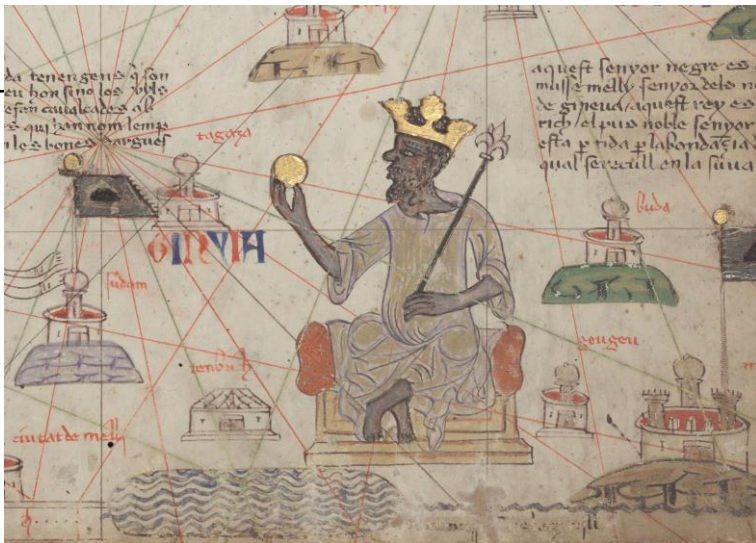 da tenen gens q̃ son
en hon sino los uyls
e fan caualcades ab
s qui han nom lemps
n les bones dargues
aquest senyor negre es
musse melly senyor dels n
de gineua aquest rey es
rich el pus noble senyor
esta ptida p labondaçia d
qual se recull en la suua
tagaza
buda
GINYIA
sudam
geugeu
tenbuch
m
ciutat de melly